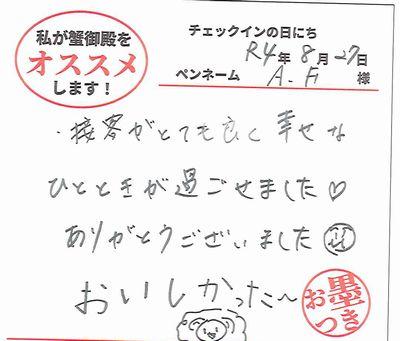 私が蟹御殿を
オススメ
します！
チェックインの日にち
R4年 8月 27日
ペンネーム A.H 様
・接客がとても良く幸せな
ひとときが過ごせました♡
ありがとうございました
おいしかった〜
お墨つき